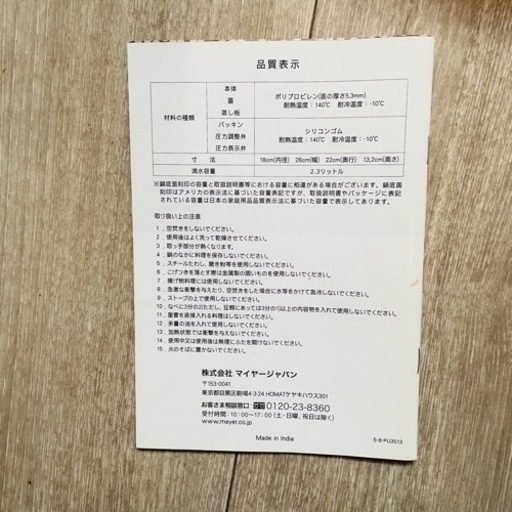 品質表示
材料の種類
本体
蓋
蒸し板
ポリプロピレン(底の厚さ5.3mm)
耐熱温度：140℃ 耐冷温度：-10℃
パッキン
圧力調整弁
圧力表示弁
シリコンゴム
耐熱温度：140℃ 耐冷温度：-10℃
寸 法
18cm(内径) 26cm(幅) 22cm(奥行) 13.2cm(高さ)
満水容量
2.3リットル
※鍋底面刻印の容量と取扱説明書等における容量に相違がある場合がございます。鍋底面
刻印はアメリカの表示法に基づいた容量表記ですが、取扱説明書やパッケージに表記
されている容量は日本の家庭用品品質表示法に基づいた容量で表示してあります。
取り扱い上の注意
1．空焚きをしないでください。
2．使用後はよく洗って乾燥させてください。
3．取っ手部分が熱くなります。
4．鍋のなかに料理を保存しないでください。
5．スチールたわし、磨き粉等を使用しないでください。
6．こげつきを落とす際は金属製の固いものを使用しないでください。
7．揚げ物料理には使用しないでください。
8．急激な衝撃を与えたり、空焚きをした場合に水等をかけて急冷しないでください。
9．ストーブの上で使用しないでください。
10．なべに3分の2(ただし、豆類にあっては3分の1)以上の内容物を入れて使用しないでください。
11．重曹を直接入れる料理はしないでください。
12．多量の油を入れて使用しないでください。
13．加熱状態では衝撃を与えないでください。
14．使用中又は使用後は無理にふたを開けないでください。
15．火のそばに置かないでください。
株式会社 マイヤージャパン
〒153-0041
東京都目黒区駒場4-3-24 HOMATケヤキハウス301
お客さま相談窓口： 0120-23-8360
受付時間：10：00〜17：00（土・日曜、祝日は除く）
www.mayer.co.jp
Made in Indie
5-6-PU3513